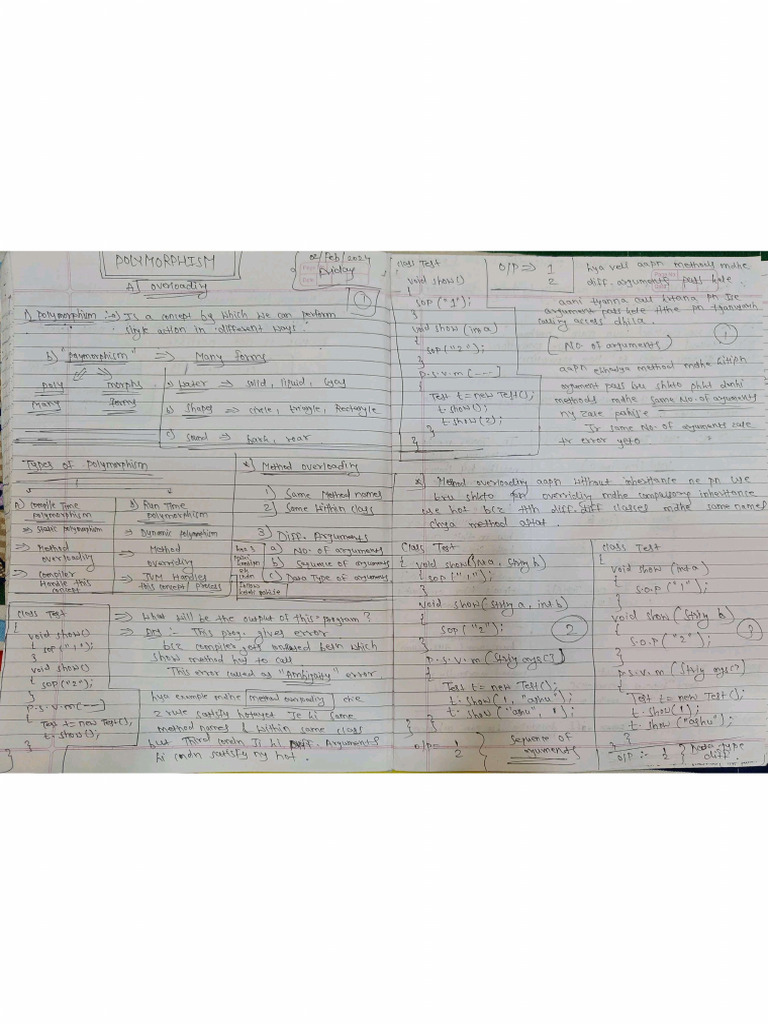 POLYMORPHISM
02/Feb/2024
Friday
A] overloading
1
1) Polymorphism :- a) Is a concept by which we can perform
single action in different ways.
b) "polymorphism" => Many forms
poly morphs
Many forms
a) Water => solid, liquid, Gas
b) Shapes => circle, triangle, Rectangle
c) sound => bark, roar.
Types of polymorphism
A) Compile Time polymorphism
=> Static polymorphism
=> Method overloading
=> Compiler Handle this concept
B) Run Time polymorphism
=> Dynamic polymorphism
=> Method overriding
=> JVM Handles this concept/process
*) Method overloading
1) Same Method names
2) Same Within class
3) Diff. Arguments
a) No. of arguments
b) Sequence of arguments
c) Data Type of arguments
class Test
{
void show()
{ sop("1");
}
void show()
{ sop("2");
}
p.s.v.m(---)
{ Test t = new Test();
t.show();
}
}
=> What will be the output of this program?
=> This prog. gives error.
bcz compiler gets confused betn which
show method has to call
This error called as "Ambiguity" error.
hya example mdhe method overloading che
2 rule satisfy hotayet Te hi same
method names & within same class
but Third condn Is hi Diff. Arguments
hi condn satisfy ny hot.
class Test
{
void show()
{
sop("1");
}
void show(int a)
{
sop("2");
}
p.s.v.m(---)
{
Test t = new Test();
t.show();
t.show(2);
}
}
O/P => 1
2
hya veli aapn methods mdhe
diff. arguments pass kele.
aani tyanna call krtana pn
argument pass kele
1
[No. of arguments]
aapn method mdhe kitihi
argument pass kru shkto
methods mdhe same No. of arguments
ny zale pahije
Jr same No. of arguments zale
tr error yeto
*) Method overloading aapn without inheritance ne pn use
kru shkto for overriding mdhe compulsory inheritance
use hot bcz tith diff. diff classes mdhe same names
chya method astat.
class Test
{ void show(int a, String b)
{ sop("1");
}
void show(String a, int b)
{
sop("2");
}
p.s.v.m(String args[])
{
Test t = new Test();
t.show(1, "ashu");
t.show("ashu", 1);
}
}
2
O/P = 1
2
Sequence of
arguments
class Test
{
void show(int a)
{
S.O.P("1");
}
void show(String b)
{
S.O.P("2");
}
p.s.v.m(String args[])
{
Test t = new Test();
t.show(1);
t.show("ashu");
}
}
3
O/P :- 1
2
Data type
diff